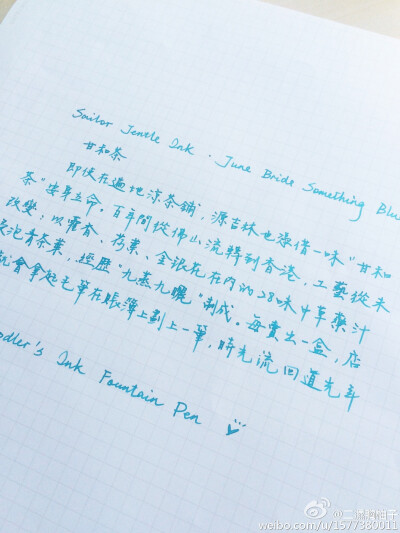 Sailor Jentle Ink · June Bride Something Blu
甘和茶
即使在遍地涼茶鋪，源吉林也憑借一味"甘和
茶"安身立命。百年間從佛山流轉到香港，工藝從未
改變，以藿香、荷葉、金銀花在內的28味中草藥汁
浸泡青茶葉，經歷"九蒸九曬"制成。每賣出一盒，店
就會拿起毛筆在賬簿上劃上一筆，時光流回道光年
odler's Ink Fountain Pen
weibo.com/u/1577380011